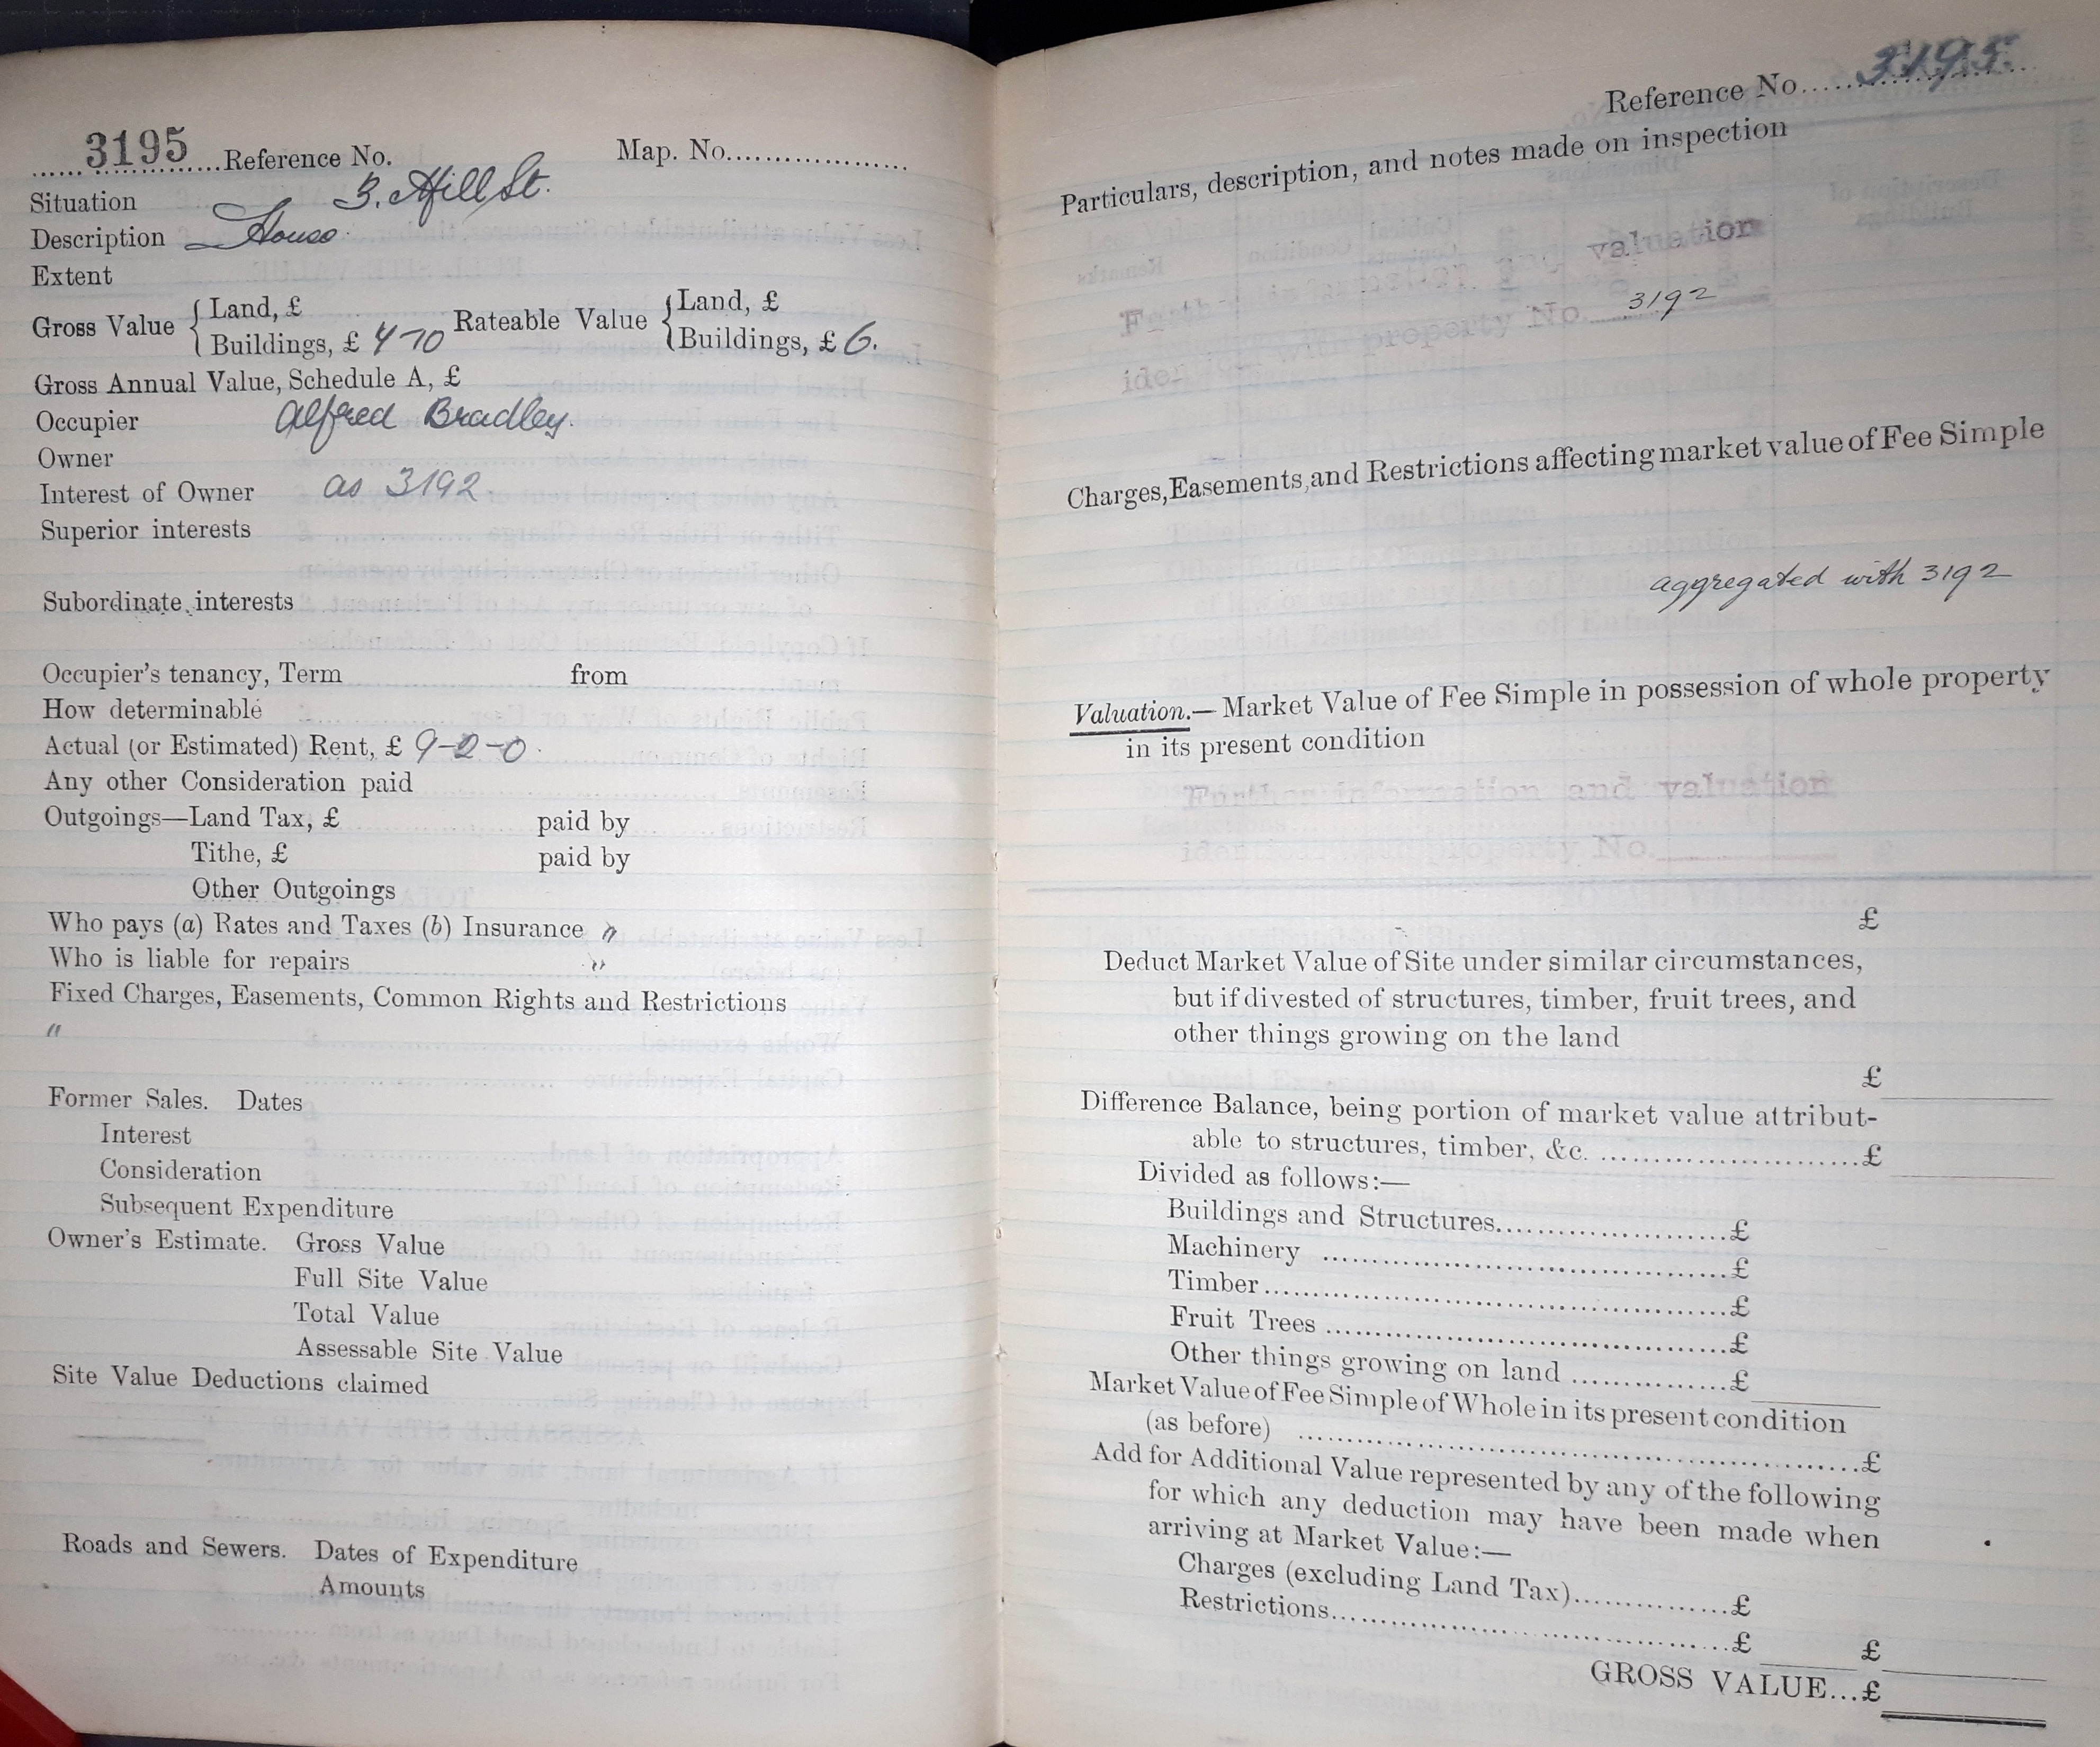 3195 Reference No. Map. No.
Situation 3. Hill St.
Description House.
Extent
Gross Value { Land, £ Rateable Value { Land, £
Buildings, £ 7-10 Buildings, £ 6.
Gross Annual Value, Schedule A, £
Occupier Alfred Bradley.
Owner
Interest of Owner as 3192.
Superior interests
Subordinate interests
Occupier's tenancy, Term from
How determinable
Actual (or Estimated) Rent, £ 9-2-0.
Any other Consideration paid
Outgoings—Land Tax, £ paid by
Tithe, £ paid by
Other Outgoings
Who pays (a) Rates and Taxes (b) Insurance "
Who is liable for repairs "
Fixed Charges, Easements, Common Rights and Restrictions
"
Former Sales. Dates
Interest
Consideration
Subsequent Expenditure
Owner's Estimate. Gross Value
Full Site Value
Total Value
Assessable Site Value
Site Value Deductions claimed
Roads and Sewers. Dates of Expenditure
Amounts
Reference No. 3195.
Particulars, description, and notes made on inspection
Further information and valuation
with property No. 3192
Charges, Easements, and Restrictions affecting market value of Fee Simple
aggregated with 3192
Valuation.—Market Value of Fee Simple in possession of whole property
in its present condition
Further information and valuation
with property No.
£
Deduct Market Value of Site under similar circumstances,
but if divested of structures, timber, fruit trees, and
other things growing on the land
£
Difference Balance, being portion of market value attribut-
able to structures, timber, &c. £
Divided as follows:—
Buildings and Structures £
Machinery £
Timber £
Fruit Trees £
Other things growing on land £
Market Value of Fee Simple of Whole in its present condition
(as before) £
Add for Additional Value represented by any of the following
for which any deduction may have been made when
arriving at Market Value:—
Charges (excluding Land Tax) £
Restrictions £ £
GROSS VALUE...£